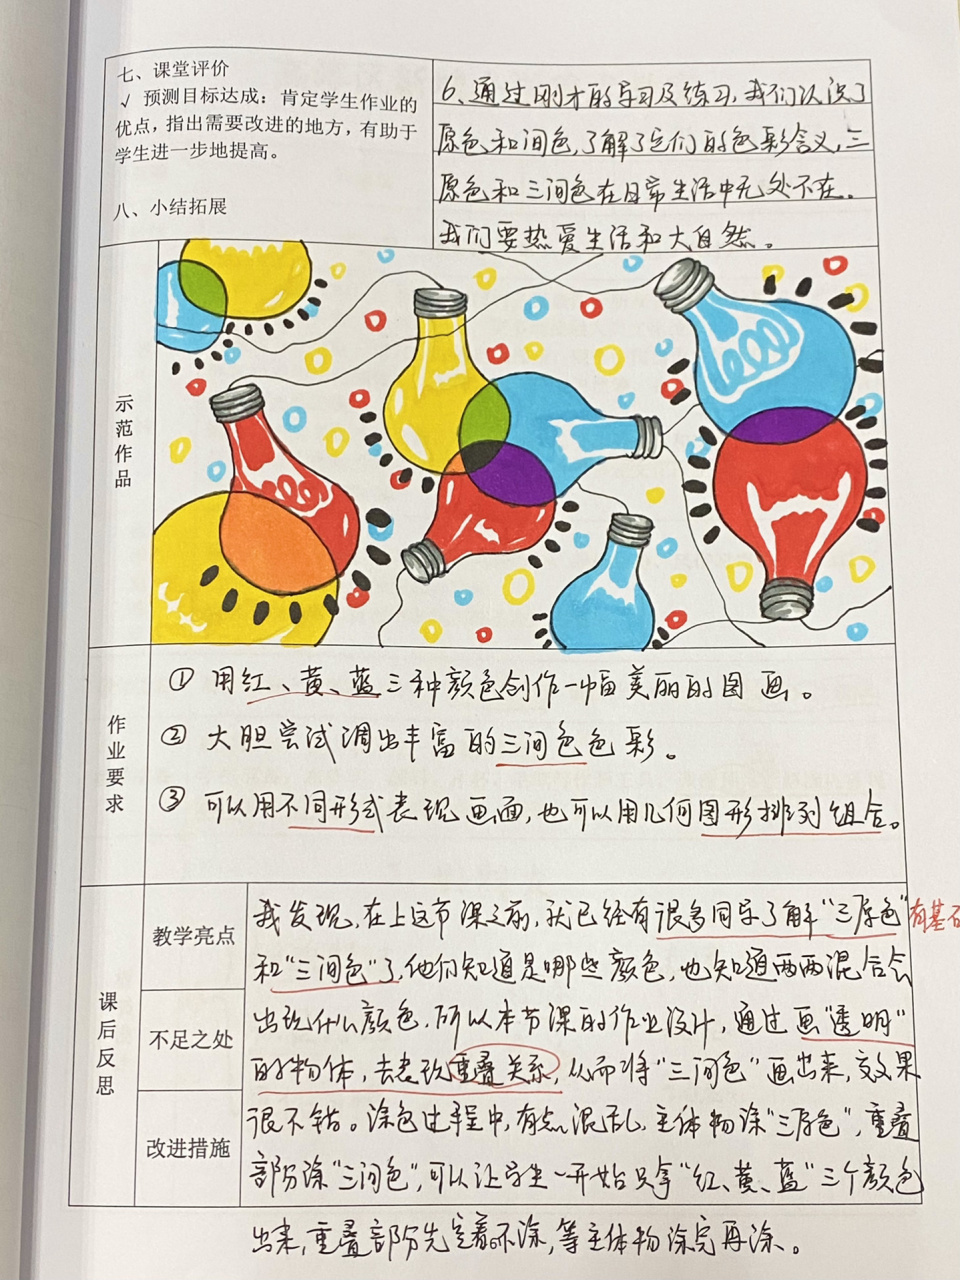 七、课堂评价
√ 预测目标达成：肯定学生作业的
优点，指出需要改进的地方，有助于
学生进一步地提高。
八、小结拓展
6、通过刚才的学习及练习，我们认识了
原色和间色，了解了它们的色彩含义，三
原色和三间色在日常生活中无处不在。
我们要热爱生活和大自然。
示范作品
作业要求
① 用红、黄、蓝三种颜色创作一幅美丽的图画。
② 大胆尝试调出丰富的三间色色彩。
③ 可以用不同形式表现画面，也可以用几何图形排列组合。
课后反思
教学亮点
不足之处
改进措施
我发现，在上这节课之前，就已经有很多同学了解“三原色” 有基础
和“三间色”了，他们知道是哪些颜色，也知道两两混合会
出现什么颜色，所以本节课的作业设计，通过画“透明”
的物体，去表现重叠关系，从而将“三间色”画出来，效果
很不错。涂色过程中，有点混乱，主体物涂“三原色”，重叠
部分涂“三间色”，可以让学生一开始只拿“红、黄、蓝”三个颜色
出来，重叠部分先空着不涂，等主体物涂完再涂。